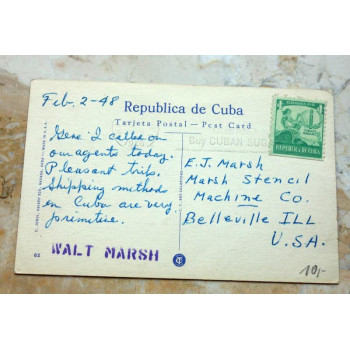 Feb. 2-48
Republica de Cuba
Tarjeta Postal - Post Card
Gene: I called on
our agents today.
Pleasant trip.
Shipping methods
in Cuba are very
primitive.
WALT MARSH
62
Buy CUBAN SUG
REPUBLICA DE CUBA
E.J. Marsh
Marsh Stencil
Machine Co.
Belleville ILL
U.S.A.
10,-